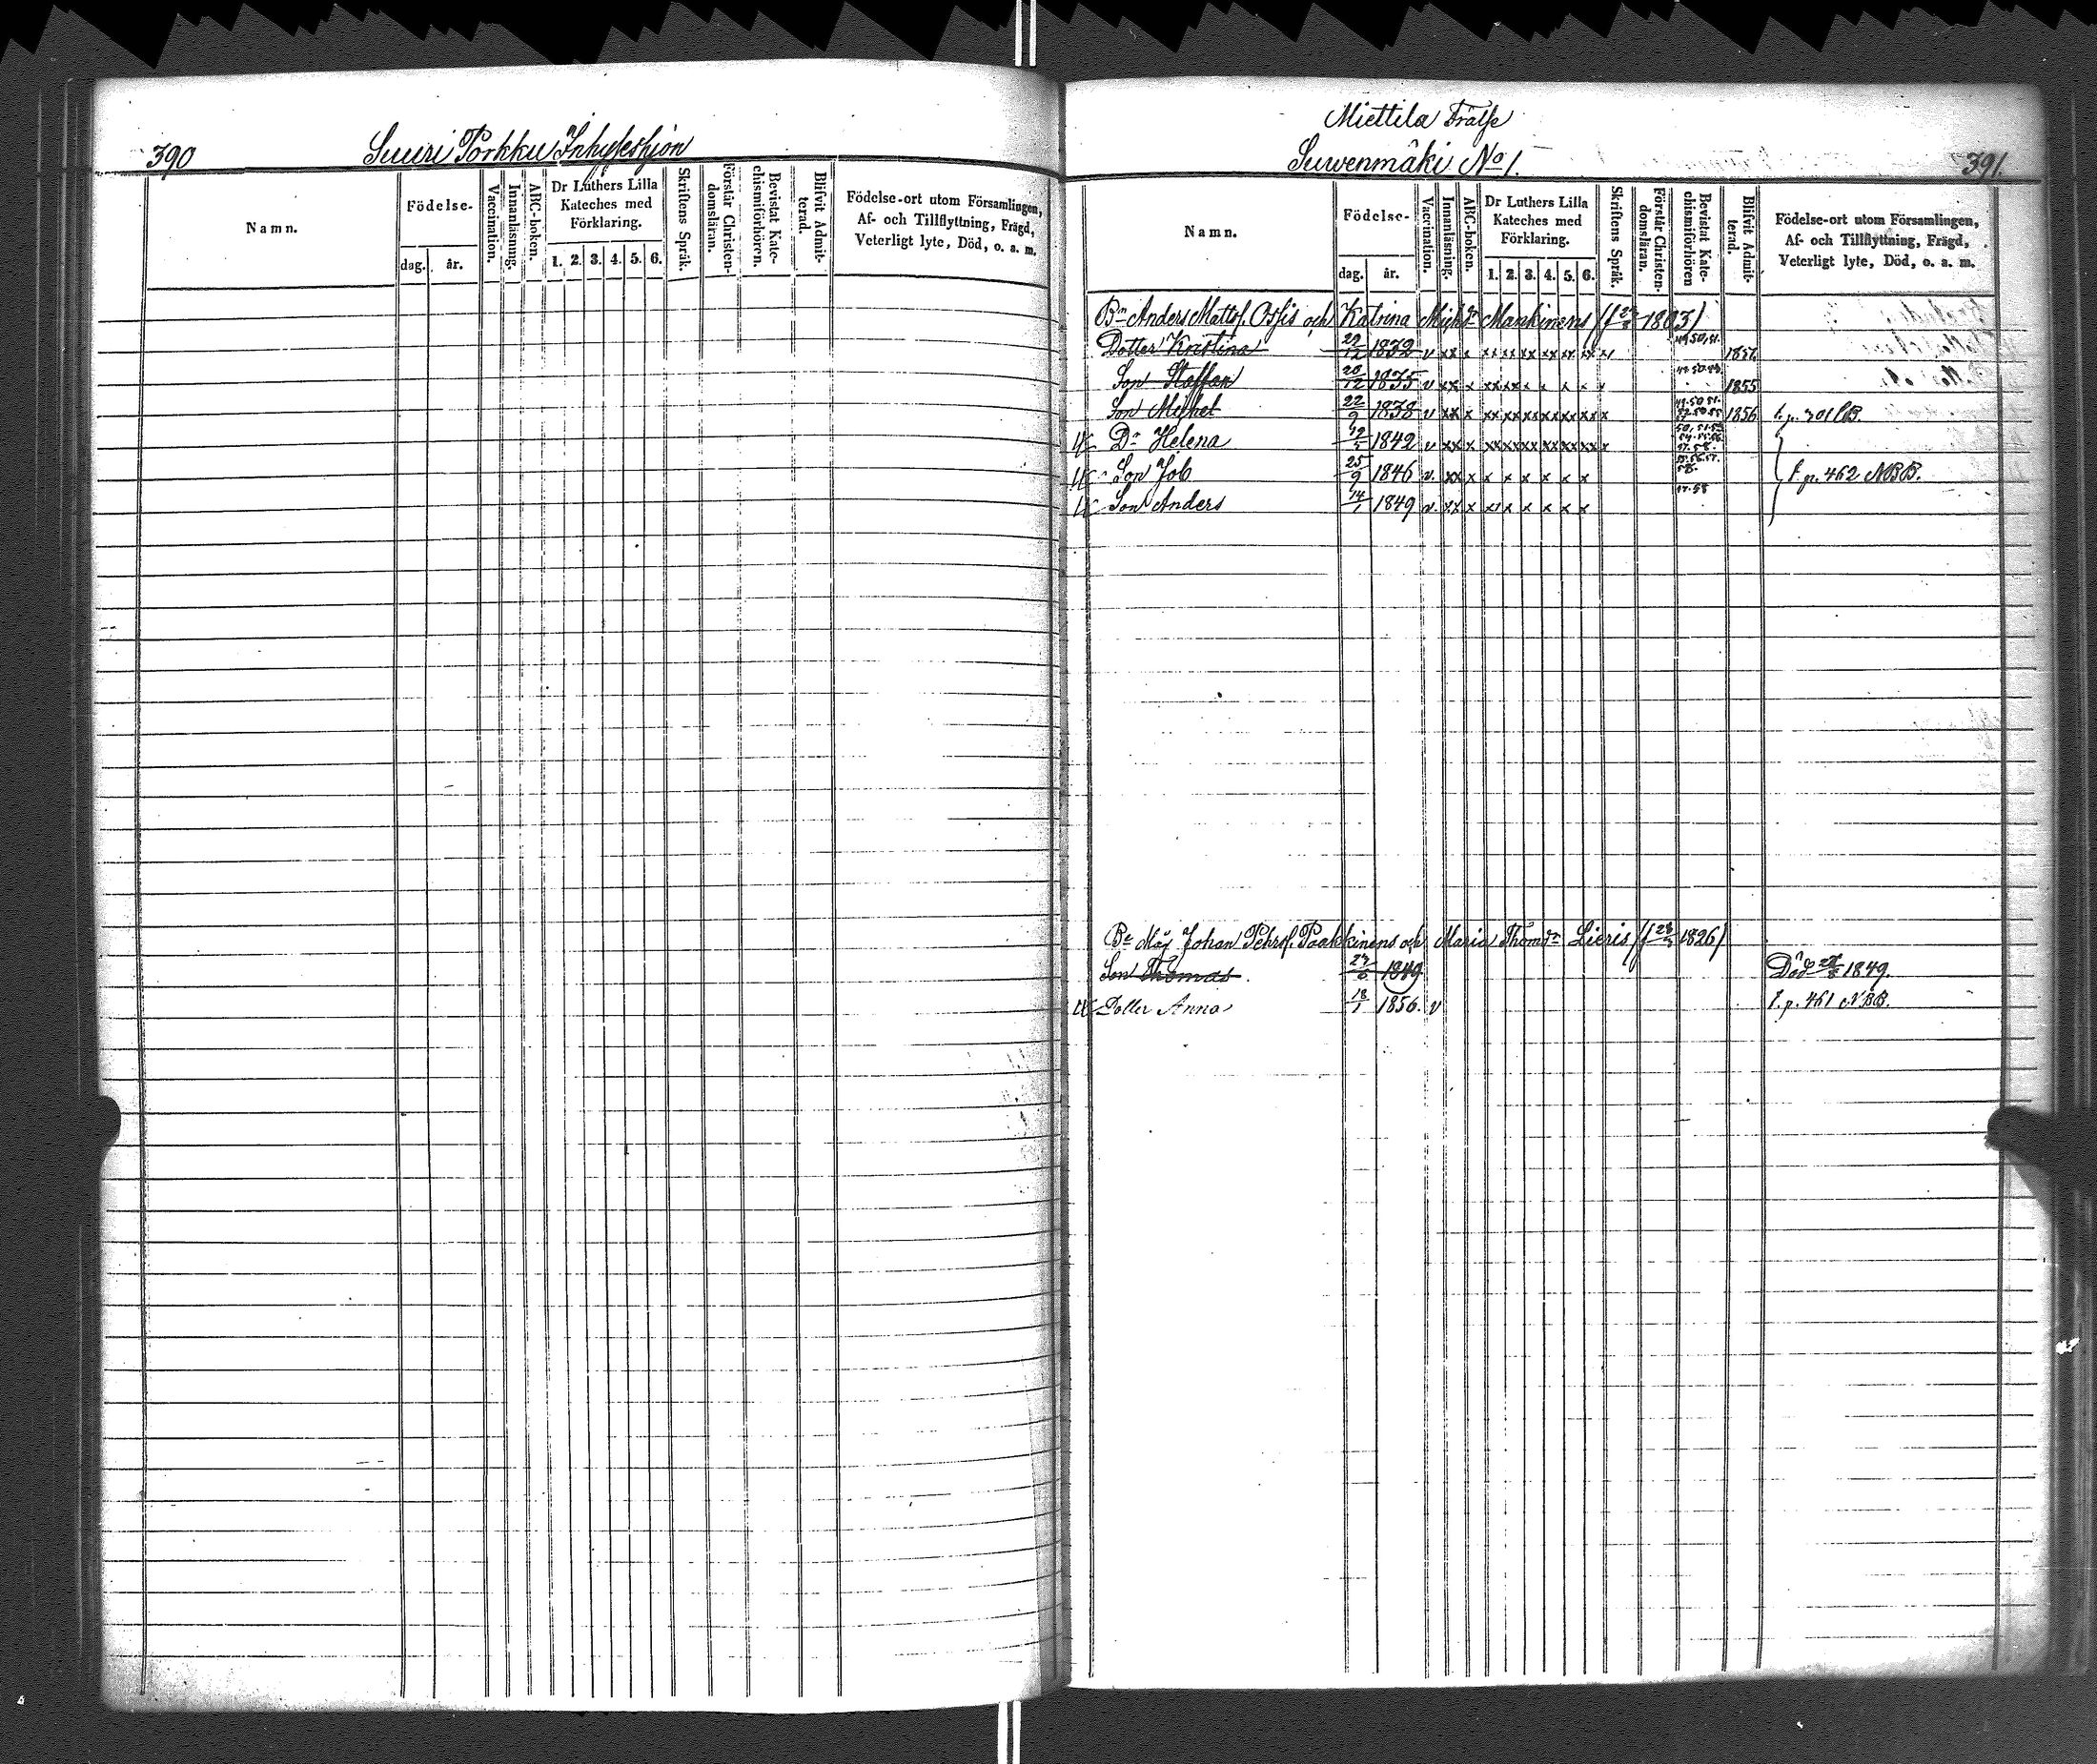 390
Suuri Porkku Inhyseshjon
Namn.
Födelse-
dag.
år.
Vaccination.
Innanläsning.
ABC-boken.
Dr Luthers Lilla
Kateches med
Förklaring.
1. 2. 3. 4. 5. 6.
Skriftens Språk.
Förstår Christen-
domsläran.
Bevistat Kate-
chismiförhören.
Blifvit Admit-
terad.
Födelse-ort utom Församlingen,
Af- och Tillflyttning, Frägd,
Veterligt lyte, Död, o. a. m.
Miettila Frälse
Suwenmäki No 1.
391.
Namn.
Födelse-
dag.
år.
Vaccination.
Innanläsning.
ABC-boken.
Dr Luthers Lilla
Kateches med
Förklaring.
1. 2. 3. 4. 5. 6.
Skriftens Språk.
Förstår Christen-
domsläran.
Bevistat Kate-
chismiförhören
Blifvit Admit-
terad.
Födelse-ort utom Församlingen,
Af- och Tillflyttning, Frägd,
Veterligt lyte, Död, o. a. m.
Bn Anders Mattss. och Katrina Michsdr Mankinens 1803)
Dotter Kristina 1832 v xx x xx xx xx xx xx xx x 1852
Son Staffan 20/12 1835 v xx x xx xx x x x x x 1855
Son Michel 22/9 1838 v xx x xx xx xx xx xx xx x 1856
Dr Helena 1842 v xx x xx xx xx xx xx xx x
Son Job 25/9 1846 v. xx x x x x x x x f. p. 462 NBB.
Son Anders 14/1 1849 v. xx x x x x x x
Johan Paakkinens och Maria Thomsdr Lieris 1826)
Son Thomas 1849 Död 1849.
Dotter Anna 18/1 1856. v f. p. 461 NBB.